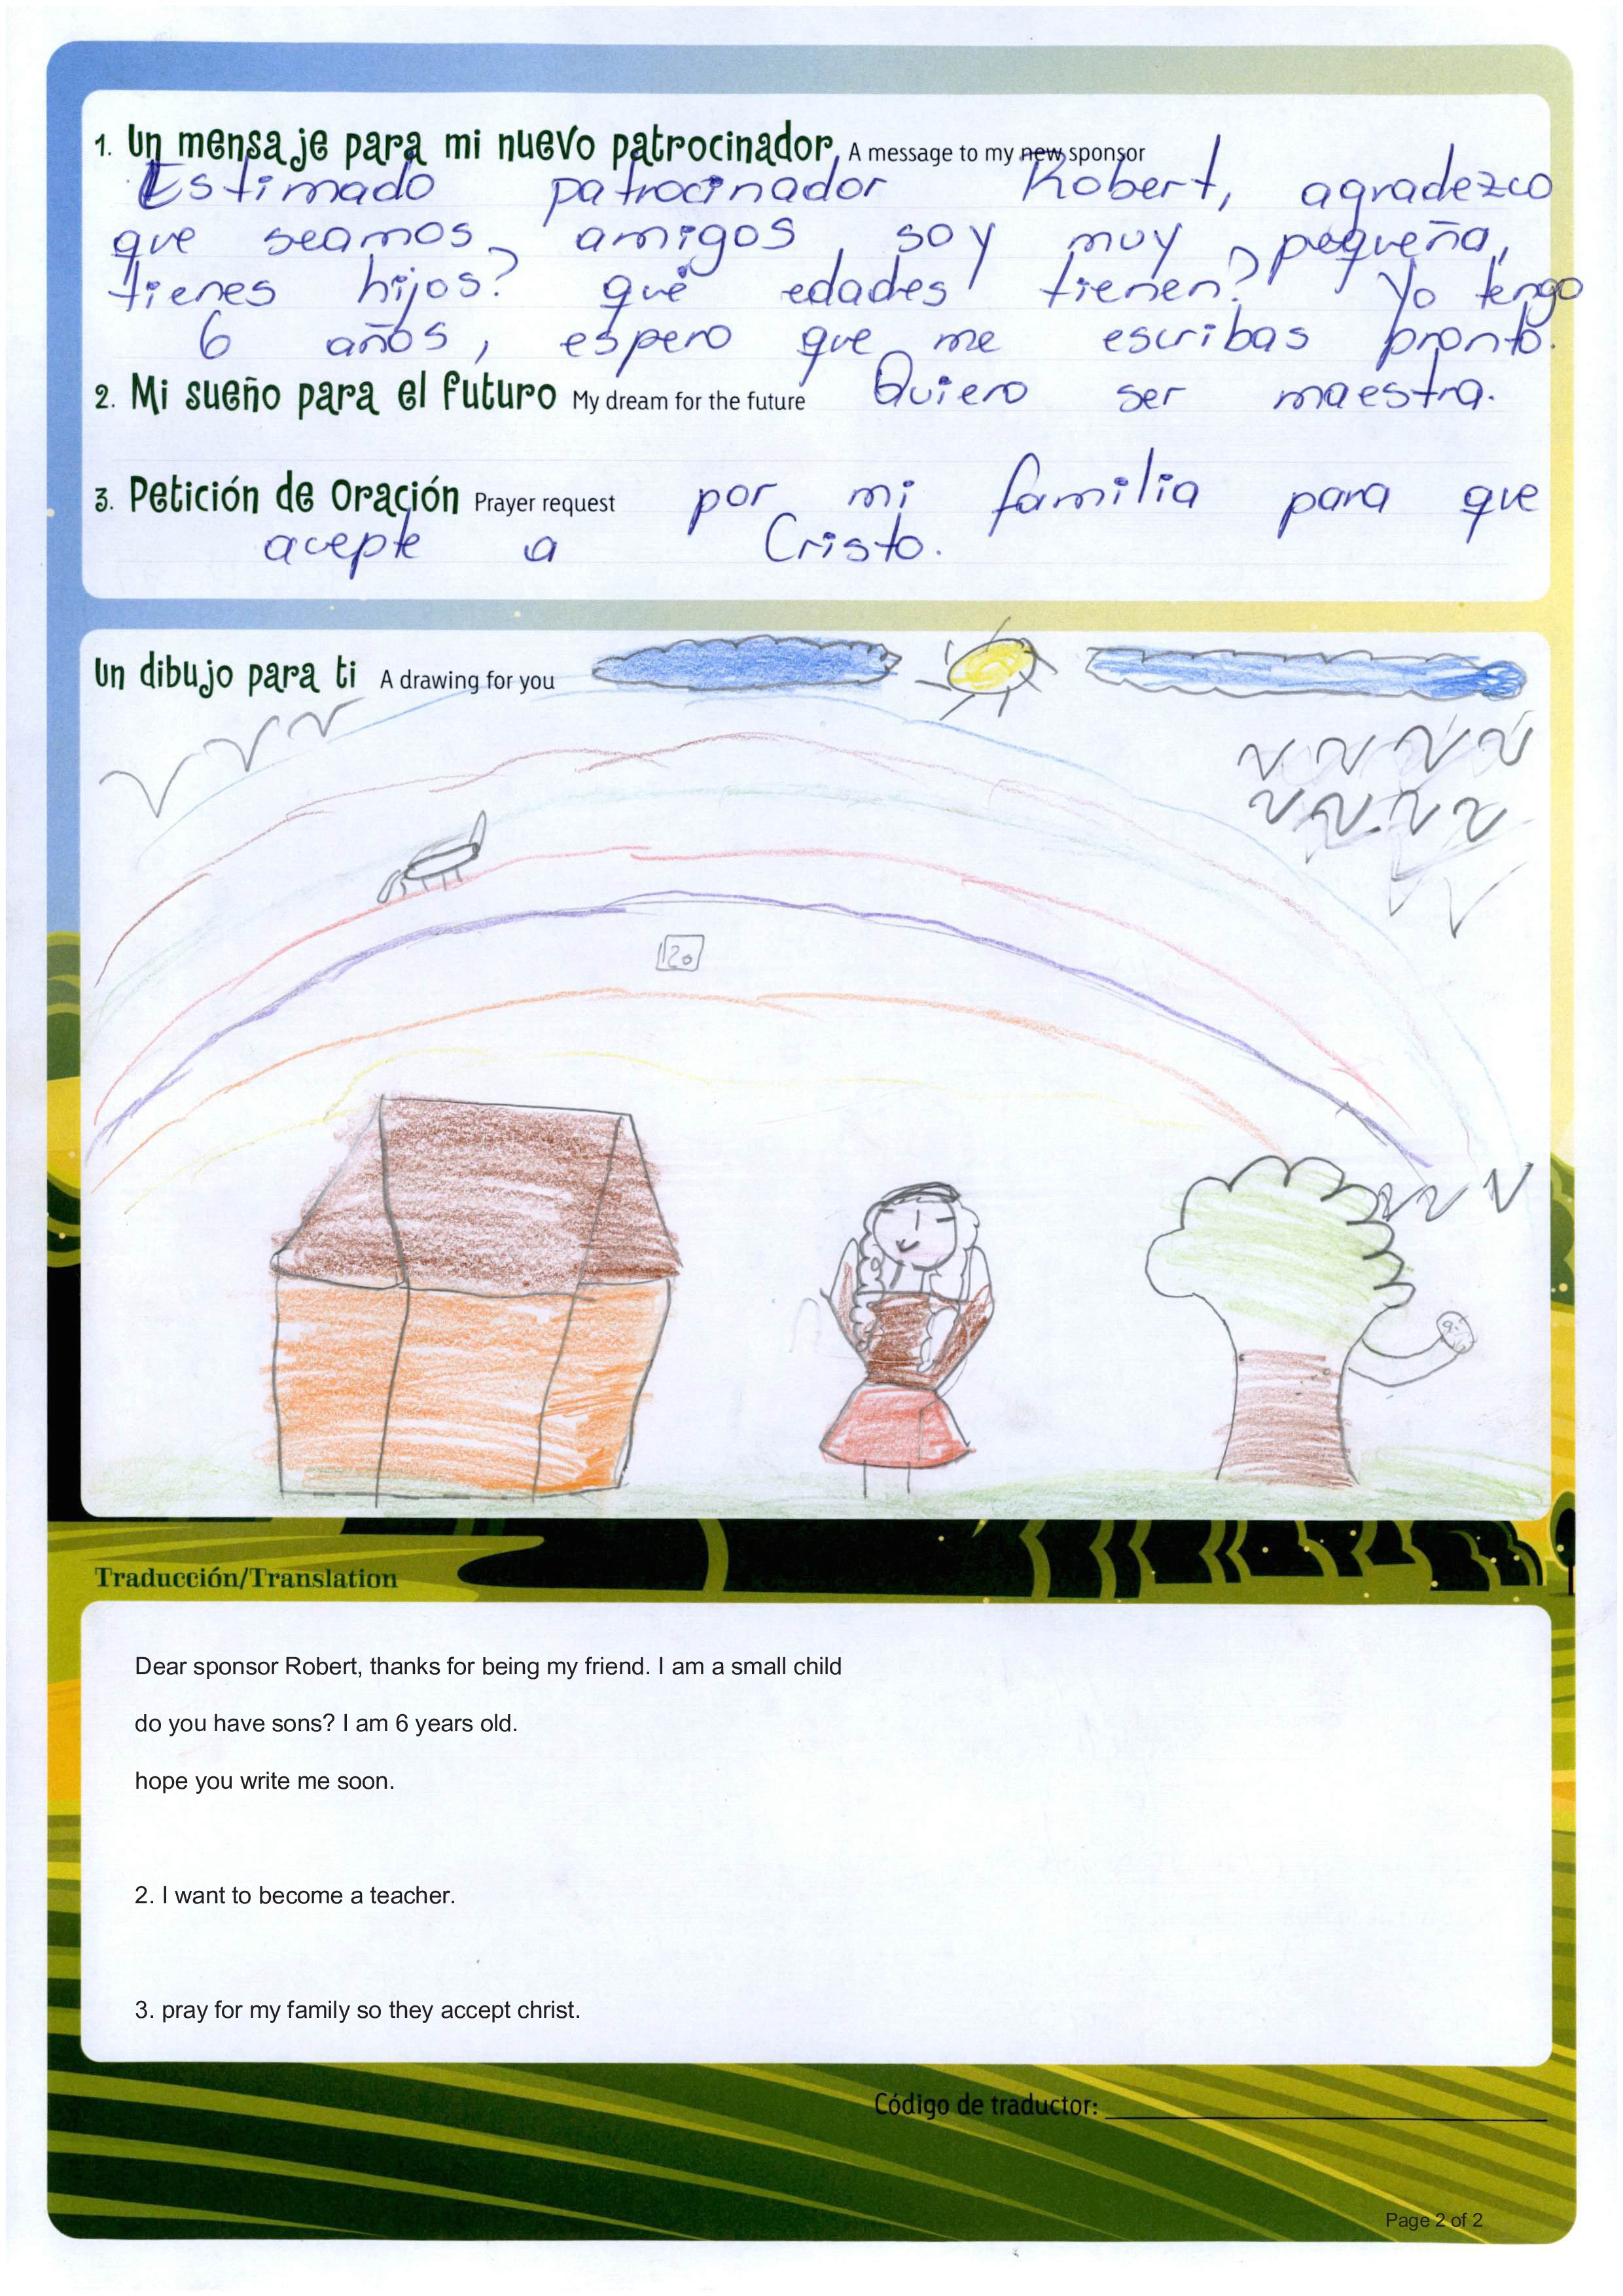 1. Un mensaje para mi nuevo patrocinador A message to my new sponsor
Estimado patrocinador Robert, agradezco
que seamos amigos, soy muy pequeña,
tienes hijos? qué edades tienen? Yo tengo
6 años, espero que me escribas pronto.
2. Mi sueño para el futuro My dream for the future Quiero ser maestra.
3. Petición de Oración Prayer request por mi familia para que
acepte a Cristo.
Un dibujo para ti A drawing for you
Traducción/Translation
Dear sponsor Robert, thanks for being my friend. I am a small child
do you have sons? I am 6 years old.
hope you write me soon.
2. I want to become a teacher.
3. pray for my family so they accept christ.
Código de traductor:
Page 2 of 2